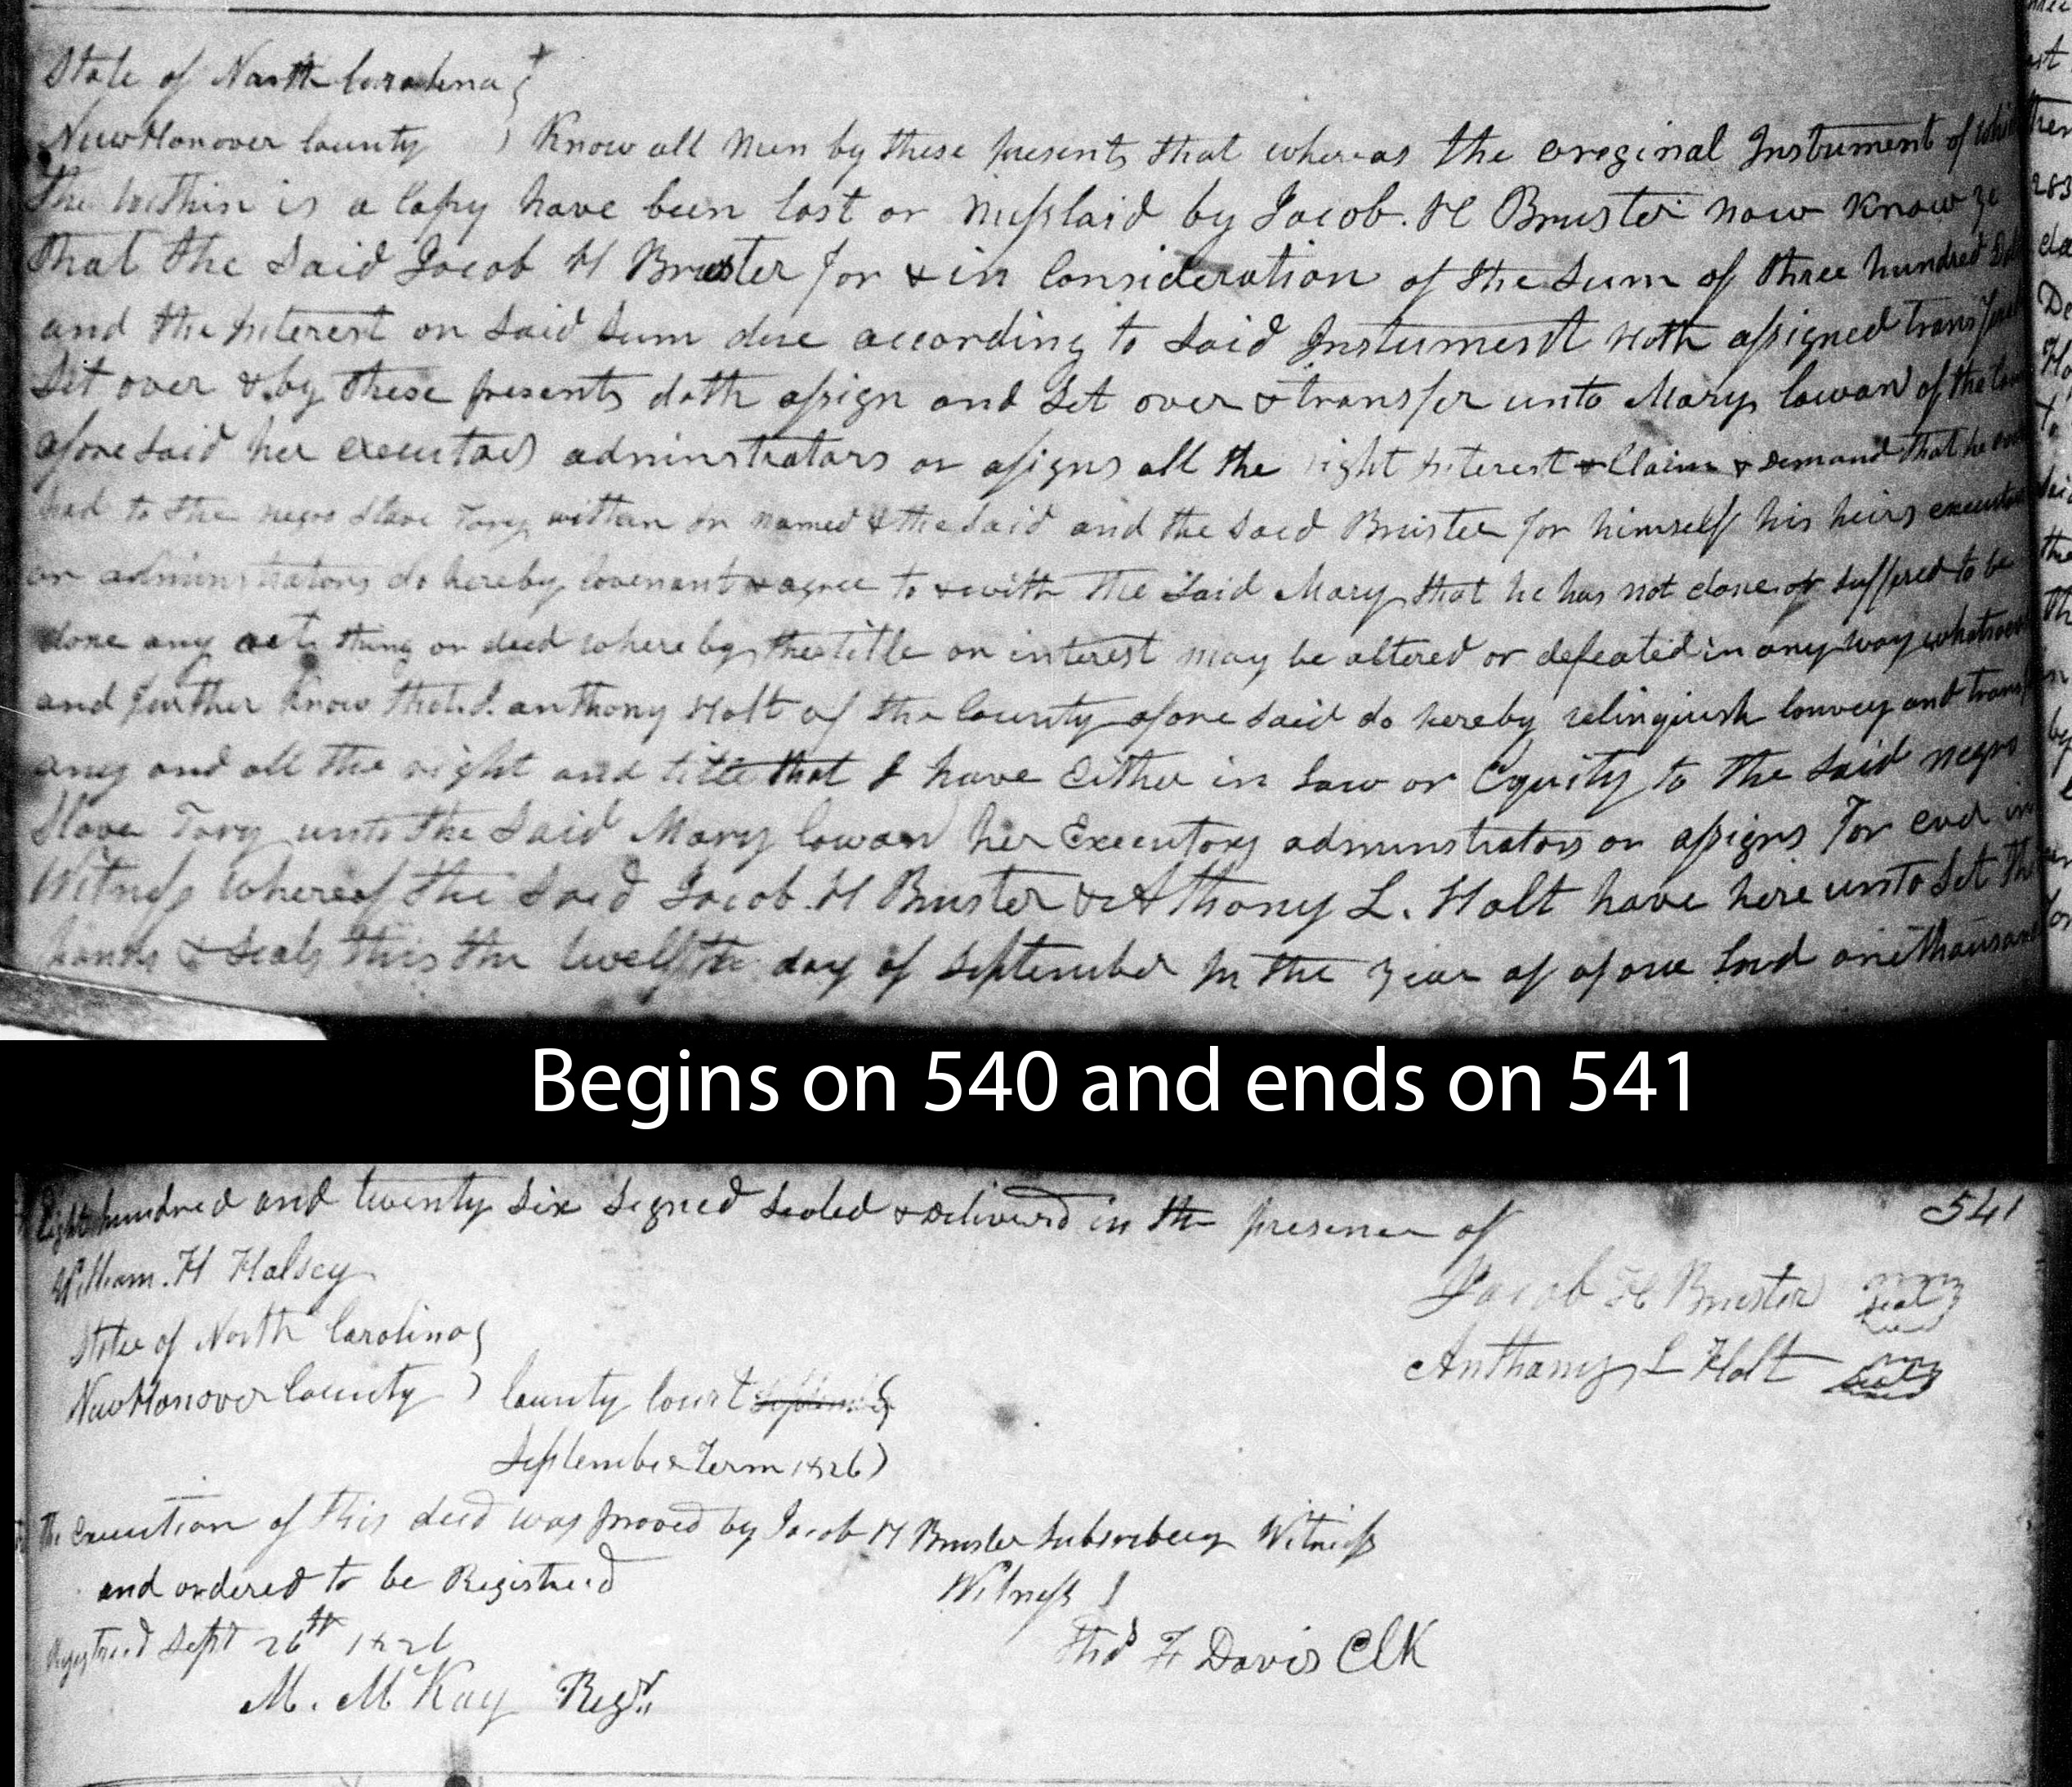 State of North Carolina
New Hanover County Know all Men by these presents that whereas the original Instrument of
the within is a Copy have been lost or misslaid by Jacob. H Bruster now know ye
that the said Jacob H Bruster for & in Consideration of the sum of three hundred
and the Interest on said sum due according to said Instument Hath assigned
Set over & by these presents doth assign and Set over & transfer unto Mary Cowan of the
aforesaid her executors adminstrators or assigns all the right Interest & Claim & Demand that he
had to the negro slave Tory within named & the said and the said Bruster for himself his heirs
or adminstrators do hereby Covenant & agree to & with the said Mary that he has not done or suffered to be
done any act thing or deed whereby the title or interest may be altered or defeated in any way whatsoever
and further Know that I anthony Holt of the County aforesaid do hereby relinquish Convey and
any and all the right and title that I have Either in Law or Equity to the said negro
Slave Tory unto the said Mary Cowan her Executors adminstrators or assigns For ever in
Witness whereof the said Jacob. H Bruster & Anthony L. Holt have here unto Set
hands & seals this the twelfth day of September In the year of of our Lord one thousand
Begins on 540 and ends on 541
541
Eight hundred and twenty six Signed Sealed & Delivered in the presence of
William. H Halsey
Jacob H Bruster seal
Anthony L Holt seal
State of North Carolina
New Hanover County County Court
September Term 1826
The Execution of this deed was proved by Jacob H Bruster Witness
and ordered to be Registered
Witness
Registered Sept 26th 1826
Thos F Davis Clk
M. McKay Regr.